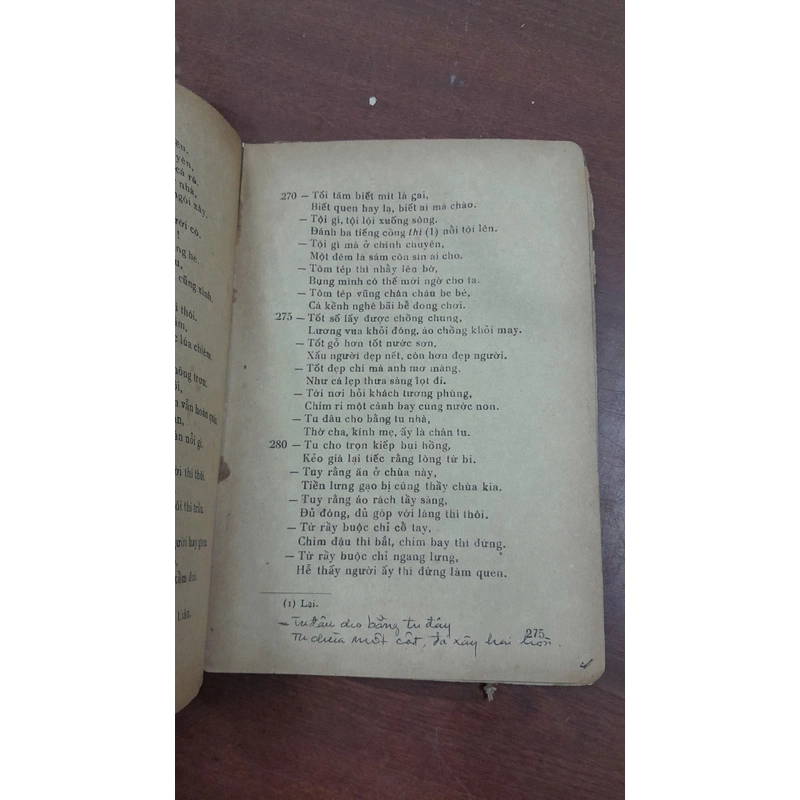 êu.
yên,
cá rô.
nhà,
ngói xây.
ười có.
g bé.
cũng xinh.
thôi.
lúa chiêm.
hông trơn.
vẫn hoàn
nồi gì.
ời thì thôi.
ôi thì trầu.
270 — Tối tăm biết mít là gai,
Biết quen hay lạ, biết ai mà chào.
— Tội gì, tội lội xuống sông.
Đánh ba tiếng cồng thì (1) nồi tội lên.
— Tội gì mà ở chính chuyên,
Một đêm là sám còn sin ai cho.
— Tôm tép thì nhảy lên bờ,
Bụng mình có thế mới ngờ cho ta.
— Tôm tép vũng chân châu be bé,
Cá kềnh nghê bãi bể dong chơi.
275 — Tốt số lấy được chồng chung,
Lương vua khỏi đóng, áo chồng khỏi may.
— Tốt gỗ hơn tốt nước sơn,
Xấu người đẹp nết, còn hơn đẹp người.
— Tốt đẹp chi mà anh mơ màng,
Như cá lẹp thưa sàng lọt đi.
— Tới nơi hỏi khách tương phùng,
Chim ri một cảnh bay cùng nước non.
— Tu đâu cho bằng tu nhà,
Thờ cha, kính mẹ, ấy là chân tu.
280 — Tu cho trọn kiếp bụi hồng,
Kẻo già lại tiếc rằng lòng từ bi.
— Tuy rằng ăn ở chùa này,
Tiền lưng gạo bị cúng thầy chùa kia.
— Tuy rằng áo rách tầy sàng,
Đủ đóng, đủ góp với làng thì thôi.
— Từ rầy buộc chỉ cổ tay,
Chim đậu thì bắt, chim bay thì đừng.
— Từ rầy buộc chỉ ngang lưng,
Hễ thấy người ấy thì đừng làm quen.
(1) Lại.
275
— Tu đâu cho bằng tu đây
Tu chùa một cột, đã xây hai hòn.